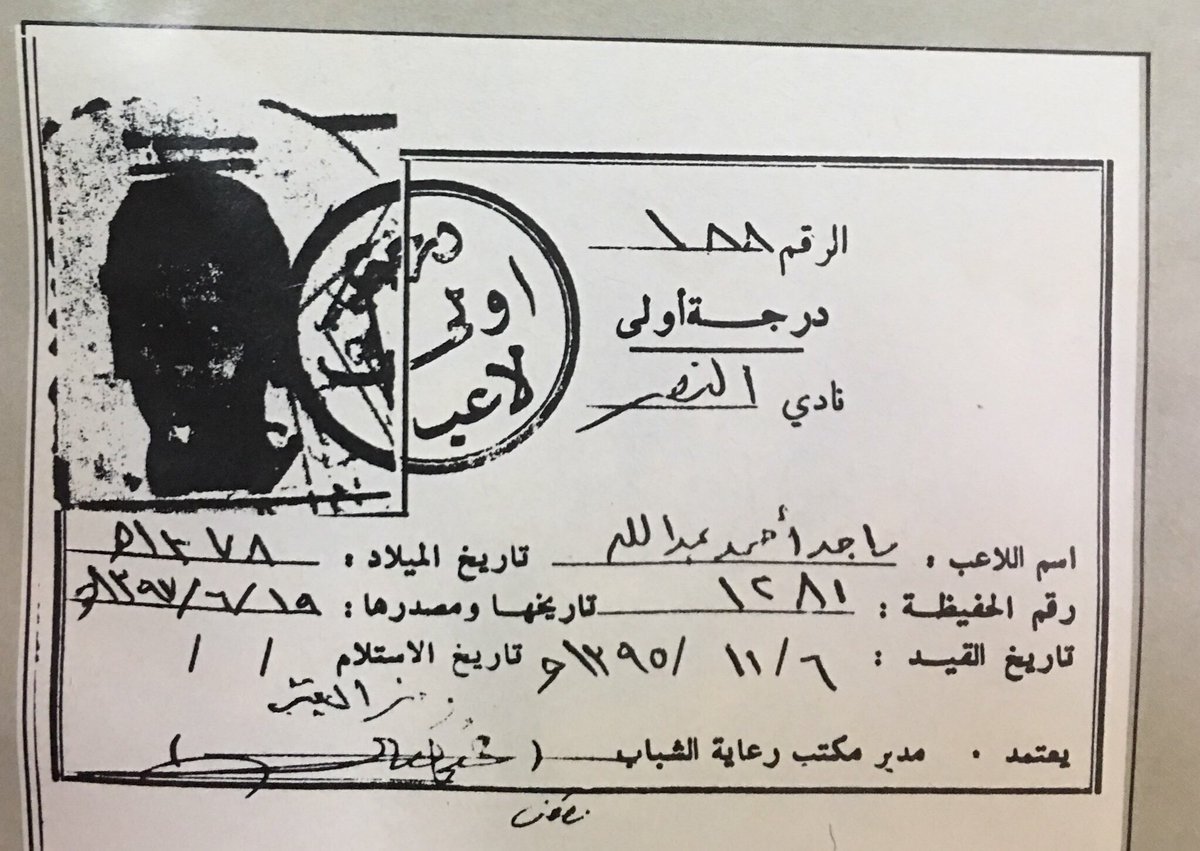 الرقم ١٨٨
درجة أولى
نادي النصر
درجة
اولى
لاعب
اسم اللاعب : ماجد أحمد عبدالله تاريخ الميلاد : ١٣٧٨هـ
رقم الحفيظة : ١٢٨١ تاريخها ومصدرها : ١٣٩٧/٦/١٩هـ
تاريخ القيد : ١٣٩٥/١١/٦هـ تاريخ الاستلام / /
يعتمد . مدير مكتب رعاية الشباب ( )